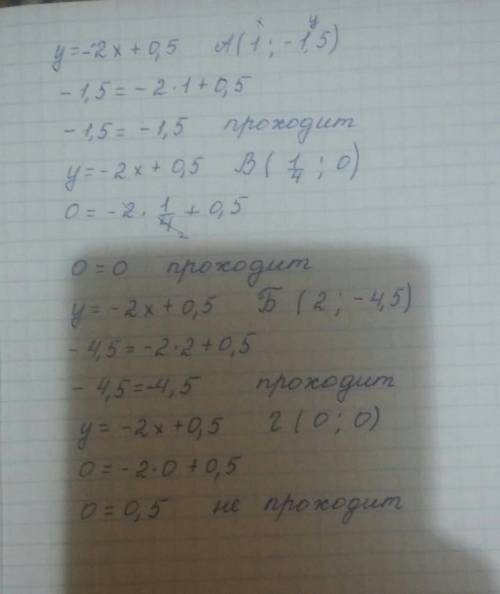 x y
y=-2x+0,5 А(1 ; -1,5)
-1,5=-2·1+0,5
-1,5=-1,5 проходит
y=-2x+0,5 В(1/4 ; 0)
0=-2·1/4+0,5
0=0 проходит
y=-2x+0,5 Б(2 ; -4,5)
-4,5=-2·2+0,5
-4,5=-4,5 проходит
y=-2x+0,5 Г(0 ; 0)
0=-2·0+0,5
0=0,5 не проходит